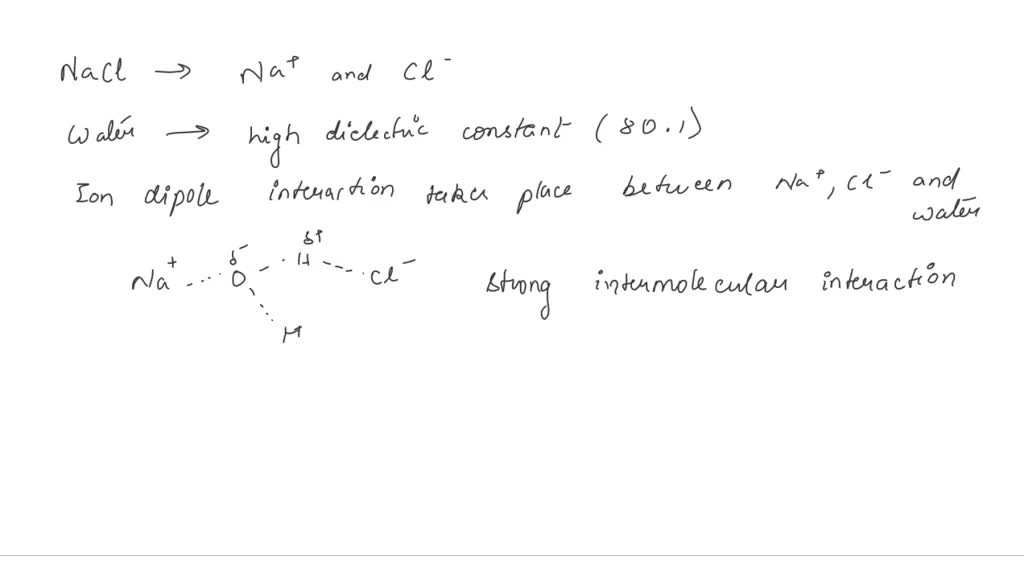 NaCl → Na⁺ and Cl⁻
Water → high dielectric constant (80.1)
Ion dipole interaction takes place between Na⁺, Cl⁻ and
water
Na⁺ ... O^δ⁻ - · H^δ⁺ ---- · Cl⁻ strong intermolecular interaction
H